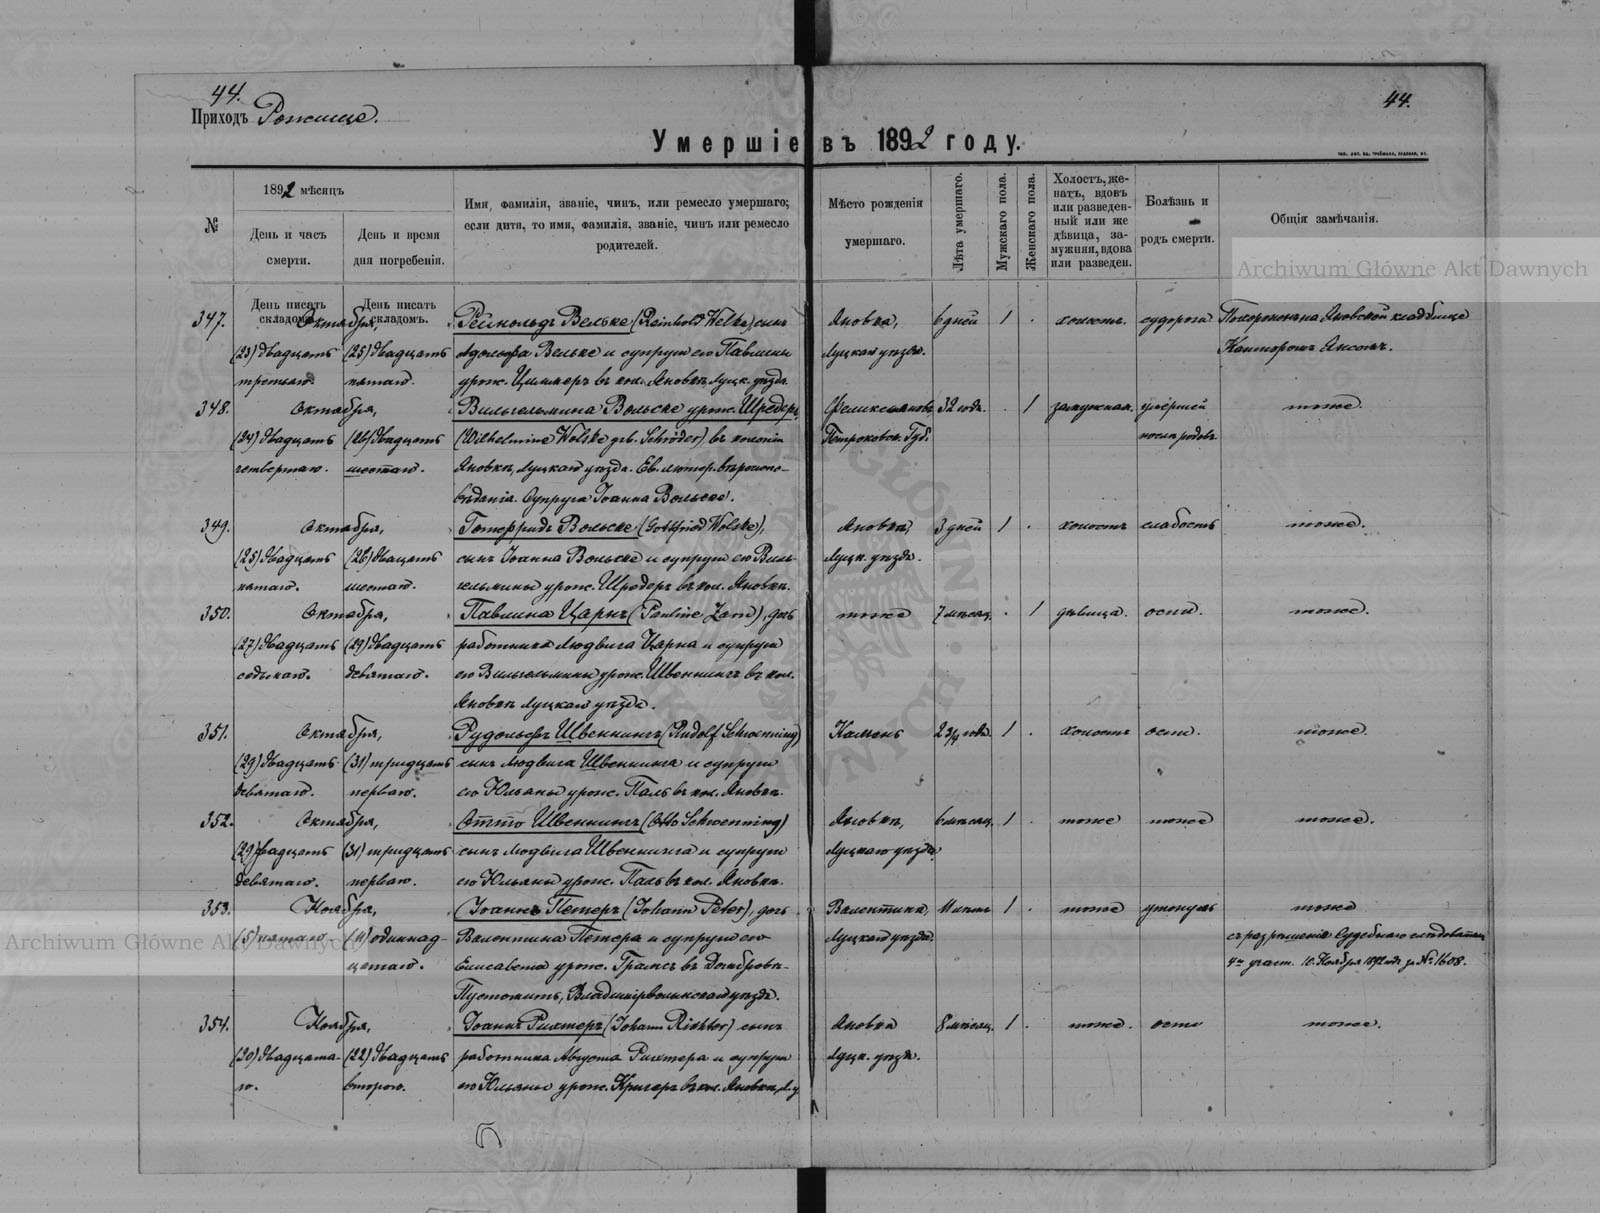 44.
44.
Приходъ Рожище.
Умершіе въ 1892 году.
№
1892 мѣсяцъ
День и часъ смерти.
День и время дня погребенія.
Имя, фамилія, званіе, чинъ, или ремесло умершаго;
если дитя, то имя, фамилія, званіе, чинъ или ремесло
родителей.
Мѣсто рожденія
умершаго.
Лѣта умершаго.
Мужскаго пола.
Женскаго пола.
Холостъ, же-
натъ, вдовъ
или разведен-
ный или же
дѣвица, за-
мужняя, вдова
или разведен.
Болѣзнь и
родъ смерти.
Общія замѣчанія.
Archiwum Główne Akt Dawnych
День писать
складомъ.
День писать
складомъ.
347. Октября, Рейнольдъ Вельке (Reinhold Welke) сынъ Яновка, 6 дней 1 . холостъ. судороги Похороненъ на Яновской кладбище
(23) двадцать (25) двадцать Адольфа Вельке и супруги его Павлины Луцкаго уѣзда. Канторомъ
третьяго. пятаго. урож. Циммеръ въ кол. Яновкѣ, Луцк. уѣзда
348. Октября, Вильгельмина Вольске урож. Шредеръ 32 года. . 1 замужняя. умершей тоже.
(24) двадцать (26) двадцать (Wilhelmine Wolske geb. Schröder) въ колоніи Петроковск. Губ. послѣ родовъ
четвертаго. шестаго. Яновкѣ, Луцкаго уѣзда. Ев. лютер. вѣроиспо-
вѣданія. Супруга Іоанна Вольске.
349. Октября, Готфридъ Вольске (Gottfried Wolske), Яновка, 3 дней 1 . холостъ слабость тоже.
(25) двадцать (26) двацать сынъ Іоанна Вольске и супруги его Виль- Луцк. уѣзда.
пятаго. шестаго. гельмины урож. Шредеръ въ кол. Яновкѣ.
350. Октября, Павлина Царнъ (Pauline Zarn), дочь тоже 7 мѣсяц. . 1 дѣвица. оспы. тоже.
(27) двадцать (29) двадцать работника Людвига Царна и супруги
седьмаго. девятаго. его Вильгельмины урож. Швеннингъ въ кол.
Яновкѣ Луцкаго уѣзда.
351. Октября, Рудольфъ Швеннингъ (Rudolf Schwenning) Камень 2 3/4 года. 1 . холостъ оспы. тоже.
(29) двадцать (31) тридцать сынъ Людвига Швеннинга и супруги
девятаго. перваго. его Юльяны урож. Паль въ кол. Яновкѣ.
352. Октября, Отто Швеннингъ (Otto Schwenning) Яновка, 6 мѣсяц. 1 . тоже тоже тоже.
(29) двадцать (31) тридцать сынъ Людвига Швеннинга и супруги Луцкаго уѣзда.
девятаго. перваго. его Юльяны урож. Паль въ кол. Яновкѣ.
353. Ноября, Іоаннъ Петеръ (Johann Peter), дочь Валентина, 1 . тоже утонулъ тоже
(5) пятаго (11) одиннад- Валентина Петера и супруги его Луцкаго уѣзда. съ разрѣшенія Судебнаго слѣдователя
цатаго. Елисавета урож. въ 4го участ. 10. Ноября 1892 года за № 1608.
Владимірволынскаго уѣзда.
Archiwum Główne Akt Dawnych
354. Ноября, Іоаннъ Рихтеръ (Johann Richter) сынъ Яновка 8 мѣсяц. 1 . тоже. оспы тоже.
(20) двадцата- (22) двадцать работника Августа Рихтера и супруги Луцк. уѣзда.
го. второго. его Юльяны урож. Кригеръ въ кол. Яновкѣ, Л. у